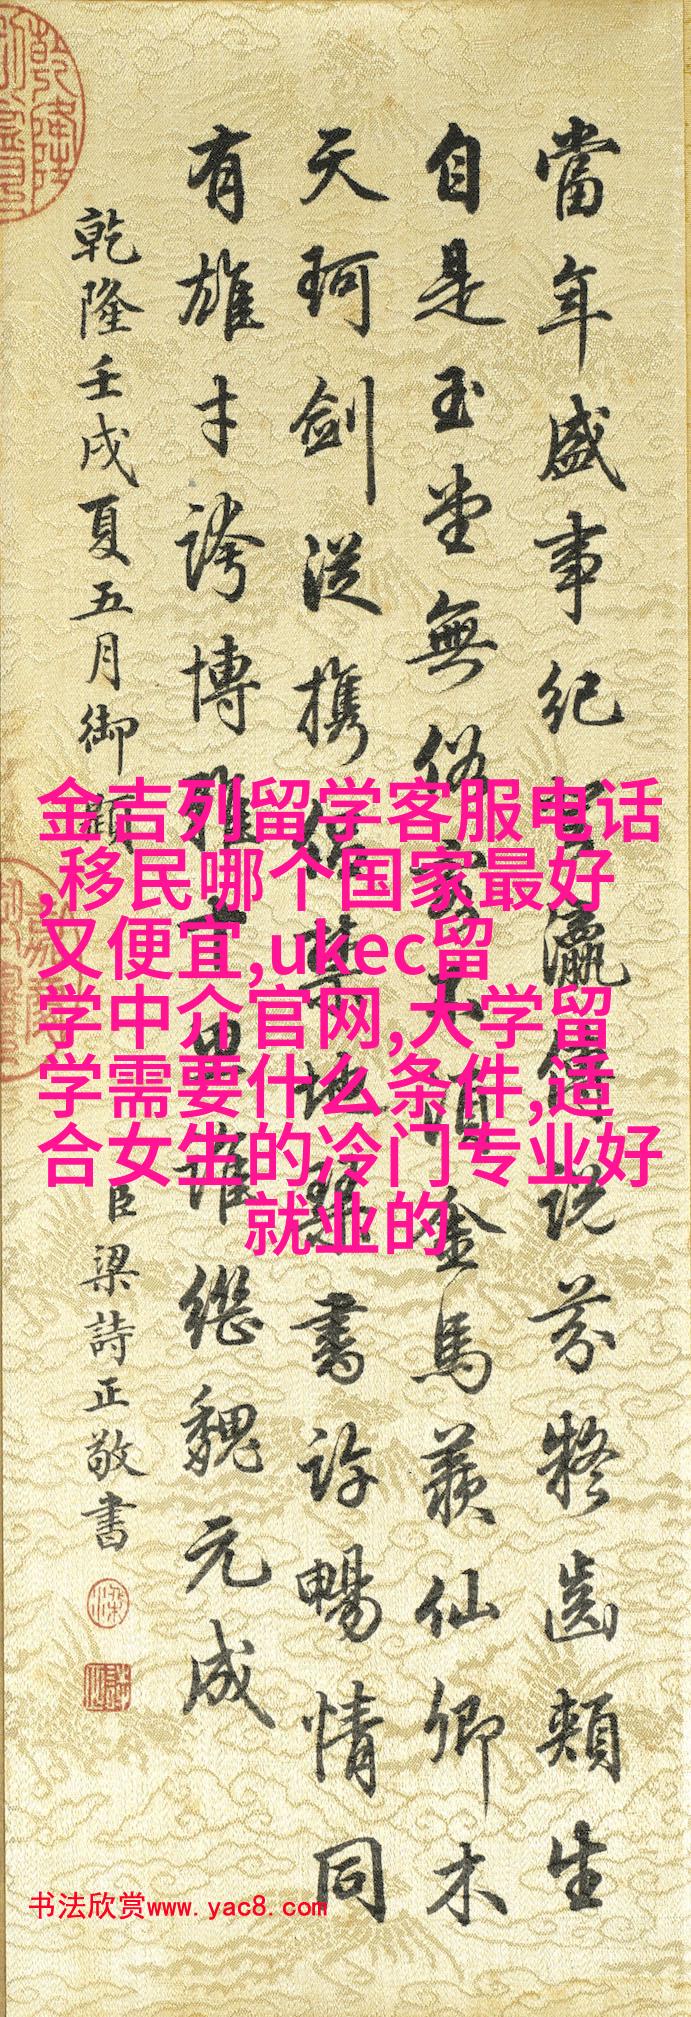 當年盛事紀登瀛佳說芬㢧齒頰生
自是玉堂無俗客不須金馬羨仙卿木
天珂劍從攜伴禁地琴書許暢情同
有雄才誇博雅千畁誰繼魏元成
乾隆壬戌夏五月御題
臣梁詩正敬書
金吉列留学客服电话
,移民哪个国家最好
又便宜,ukec留
学中介官网,大学留
学需要什么条件,适
合女生的冷门专业好
就业的
书法欣赏www.yac8.com